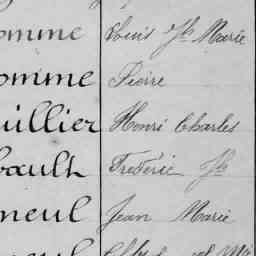 omme Louis Jh Marie
omme Pierre
uillier Henri Charles
bault Frédéric Jh
neul Jean Marie
neul